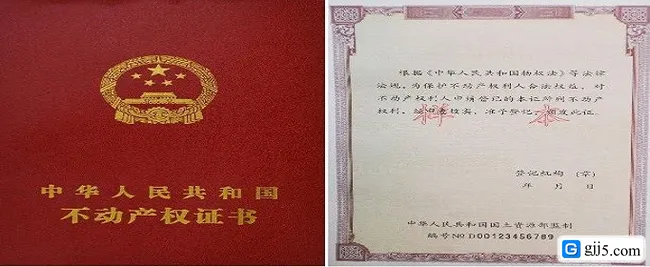 中华人民共和国
不动产权证书
根据《中华人民共和国物权法》等法律
法规，为保护不动产权利人合法权益，对
不动产权利人申请登记的本证所列不动产
权利，经审查核实，准予登记，颁发此证。
样本
登记机构（章）
年 月 日
中华人民共和国国土资源部监制
编号NO D00123456789
G gjj5.com